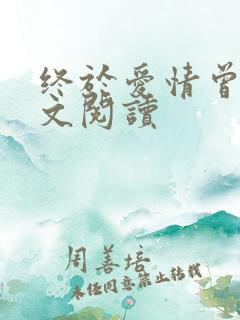 终於爱情曾
文閱讀
周善培
未经同意禁止转载